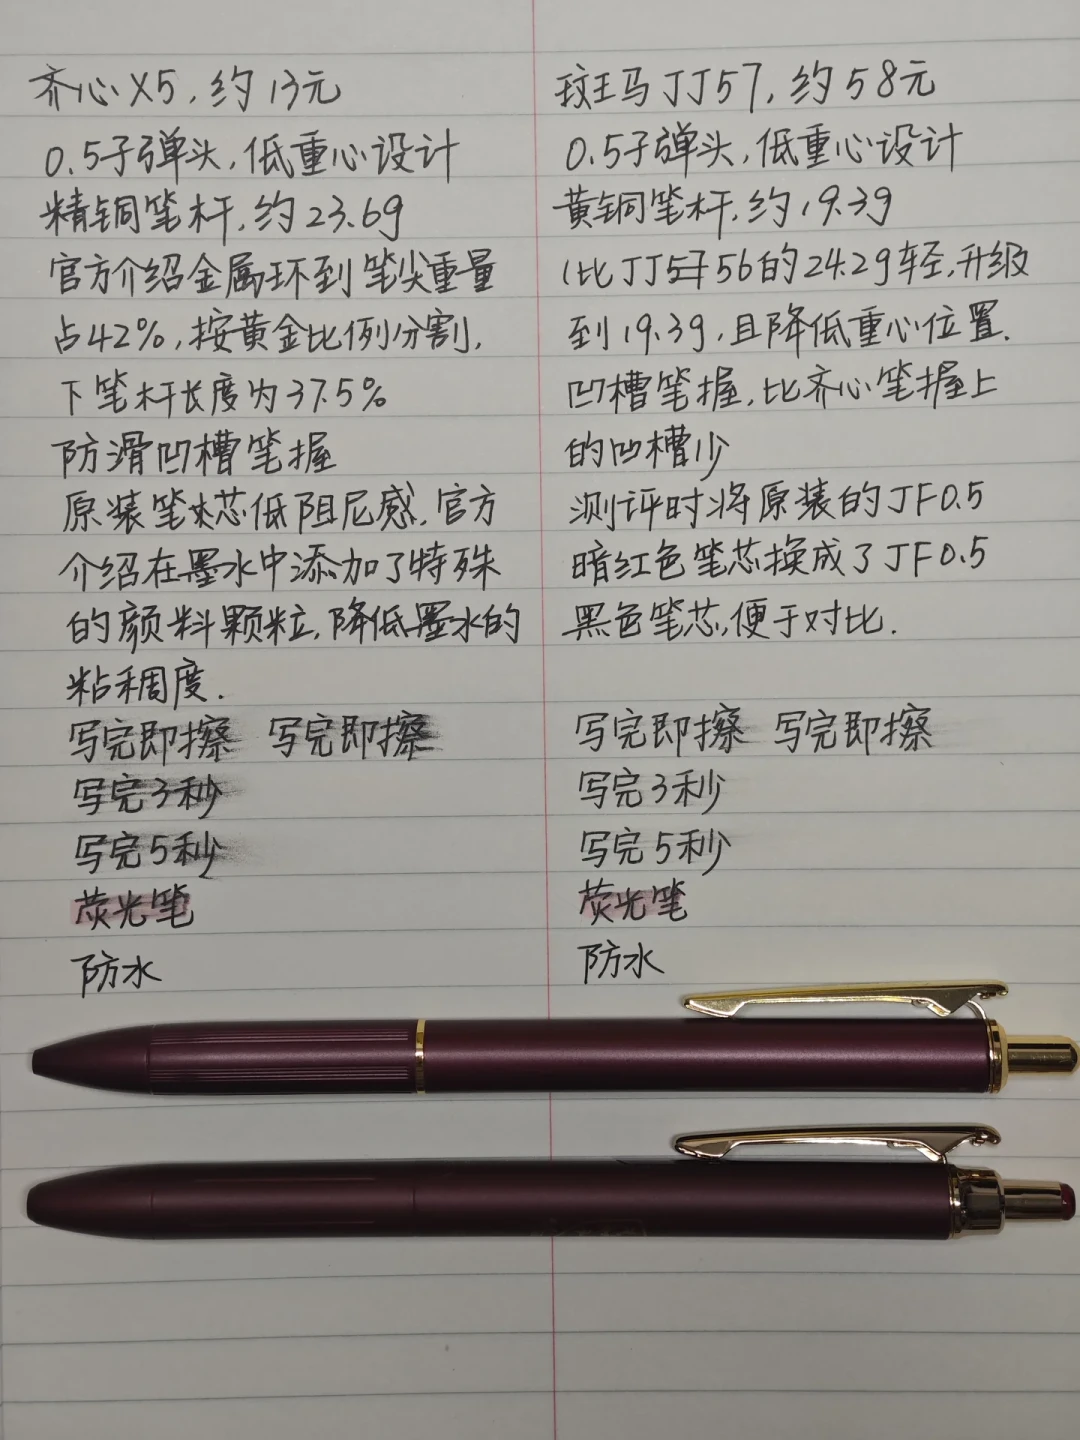 齐心X5，约13元
0.5子弹头，低重心设计
精铜笔杆，约23.6g
官方介绍金属环到笔尖重量
占42%，按黄金比例分割，
下笔杆长度为37.5%
防滑凹槽笔握
原装笔芯低阻尼感，官方
介绍在墨水中添加了特殊
的颜料颗粒，降低墨水的
粘稠度．
写完即擦 写完即擦
写完3秒
写完5秒
荧光笔
防水
斑马JJ57，约58元
0.5子弹头，低重心设计
黄铜笔杆，约19.39
（比JJ56的24.2g轻，升级
到19.3g，且降低重心位置．
凹槽笔握，比齐心笔握上
的凹槽少
测评时将原装的JF0.5
暗红色笔芯换成了JF0.5
黑色笔芯，便于对比．
写完即擦 写完即擦
写完3秒
写完5秒
荧光笔
防水